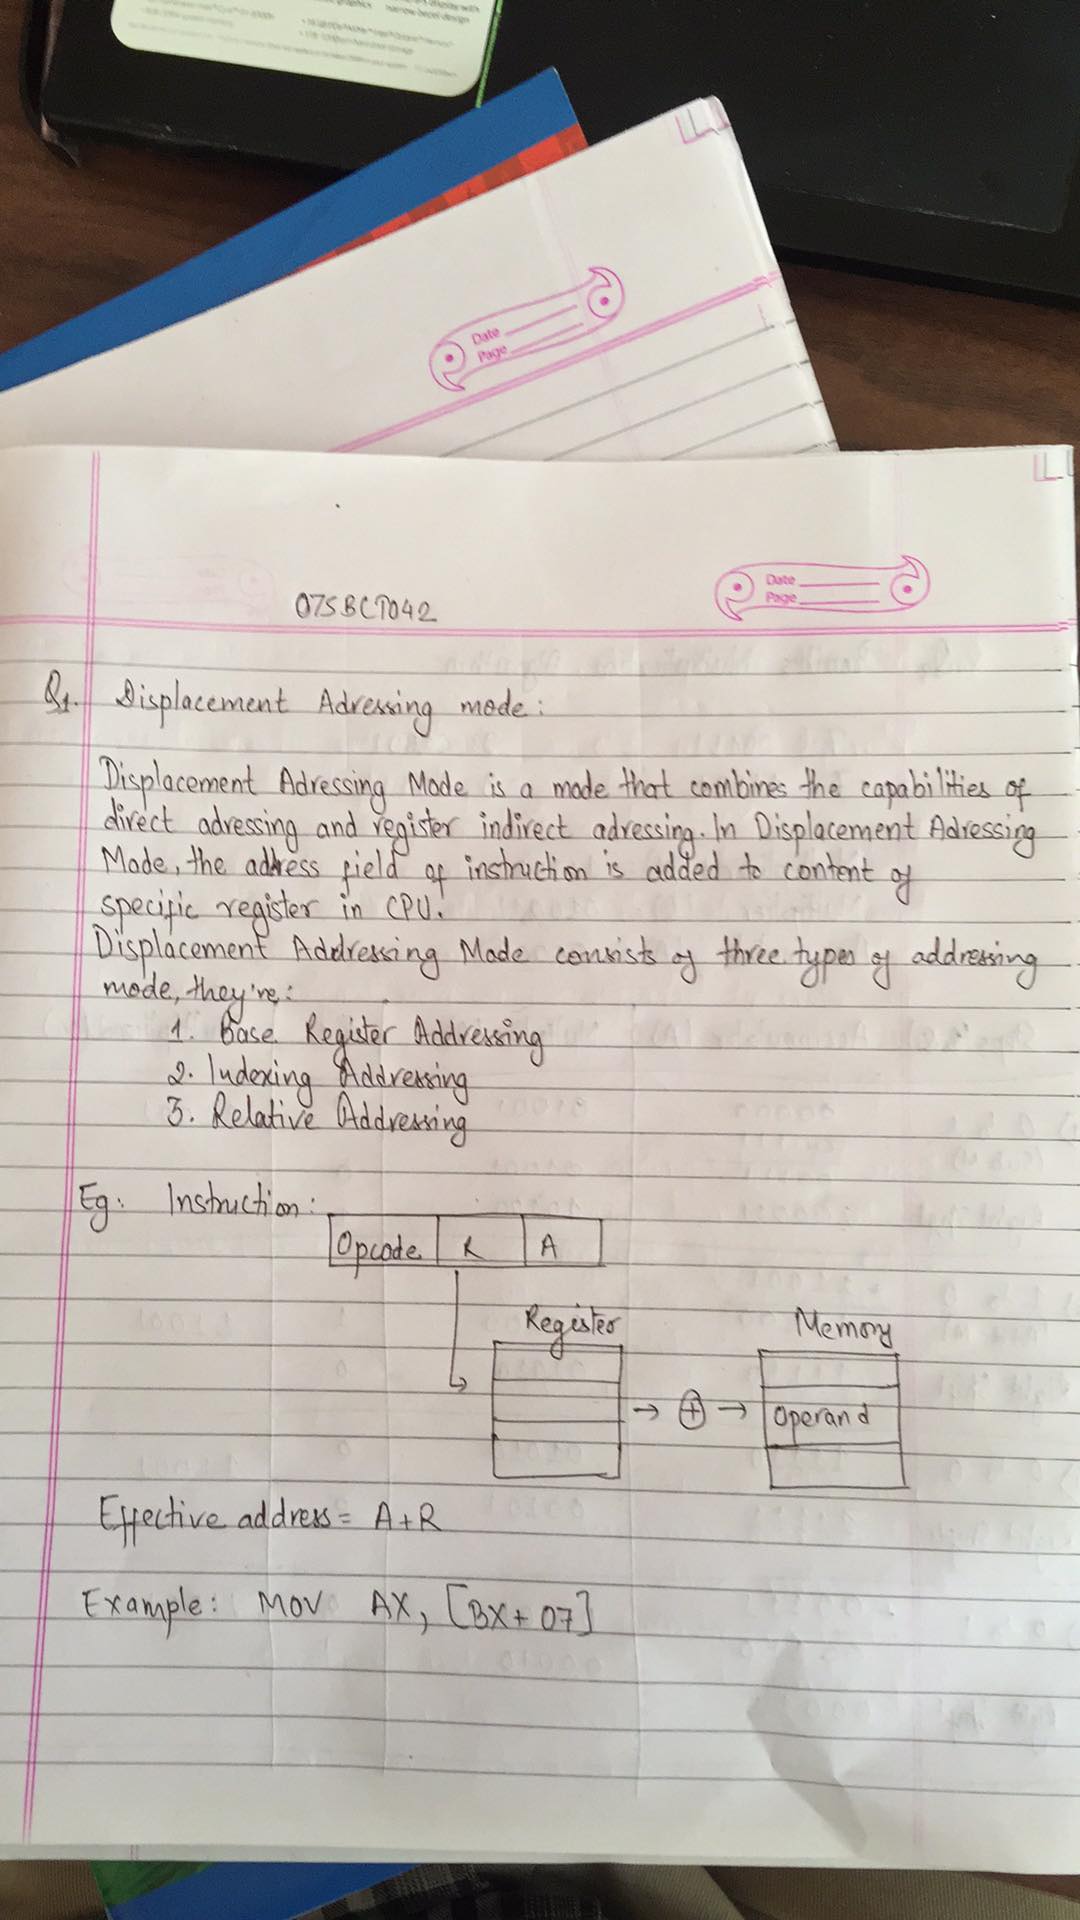 narrow bezel design
Date
Page
Date
Page
075BCT042
Q1. Displacement Adressing mode:
Displacement Adressing Mode is a mode that combines the capabilities of
direct adressing and register indirect adressing. In Displacement Adressing
Mode, the address field of instruction is added to content of
specific register in CPU.
Displacement Addressing Mode consists of three types of addressing
mode, they're:
1. Base Register Addressing
2. Indexing Addressing
3. Relative Addressing
Eg: Instruction:
Opcode R A
Register Memory
→ ⊕ → Operand
Effective address = A+R
Example: MOV AX, [BX+07]